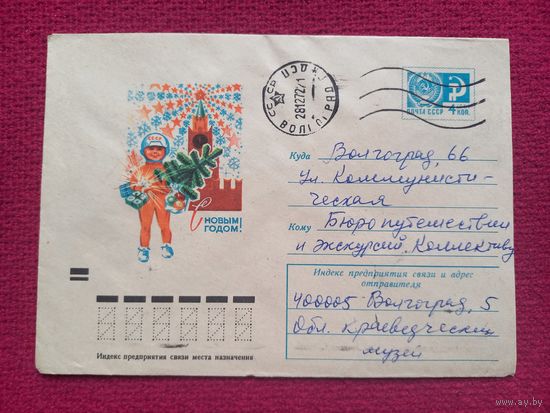 СССР
С НОВЫМ
ГОДОМ!
СССР ВОЛГОГРАД
28127221
ПОЧТА СССР 4 КОП.
Куда Волгоград, 66
Ул. Коммунисти-
ческая
Кому Бюро путешествий
и экскурсий. Коллективу
Индекс предприятия связи и адрес
отправителя
400005 Волгоград, 5
Обл. краеведческий
музей
Индекс предприятия связи места назначения
www.ay.by